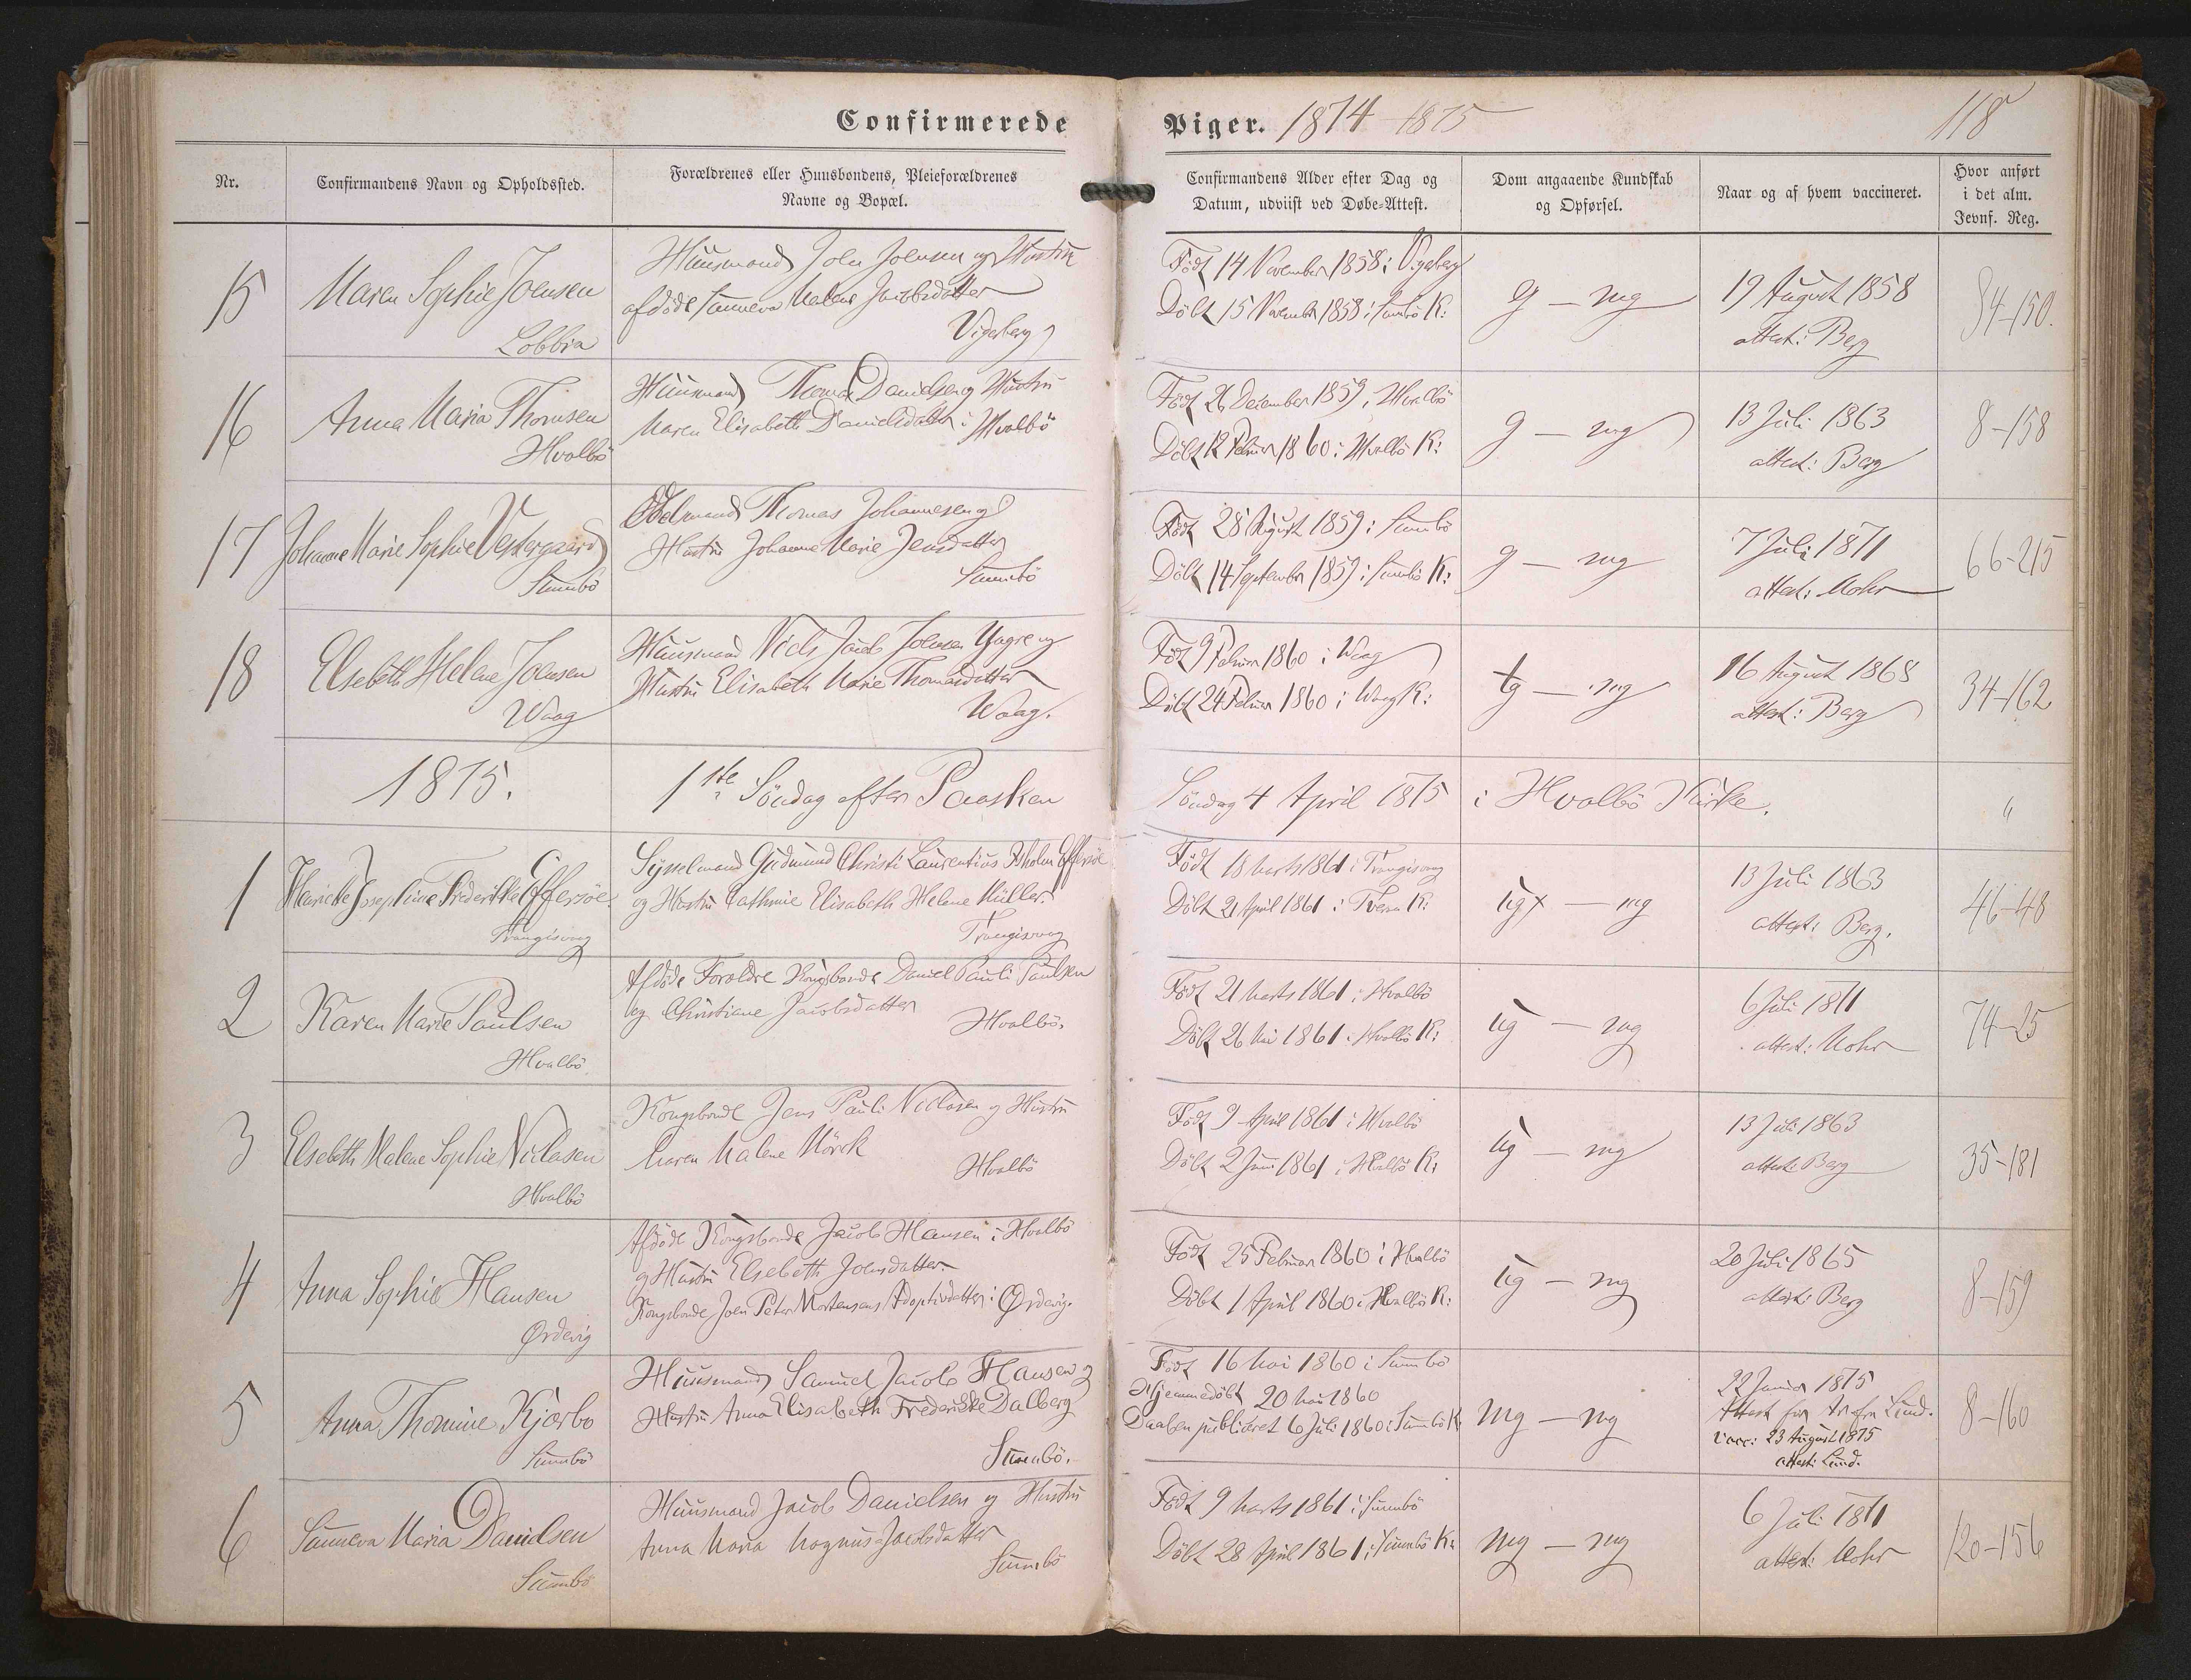 Confirmerede Piger. 1874-1875
118
Nr.
Confirmandens Navn og Opholdssted.
Forældrenes eller Huusbondens, Pleieforældrenes
Navne og Bopæl.
Confirmandens Alder efter Dag og
Datum, udviist ved Døbe-Attest.
Dom angaaende Kundskab
og Opførsel.
Naar og af hvem vaccineret.
Hvor anført
i det alm.
Jevnf. Reg.
15
Maren Sophie Joensen
Lobbra
Huusmand Joen Joensen og Hustru
afdöde Sunneva Malene Jacobsdatter
Vigerberg
Födt 14 November 1858 i Vigerberg
Döbt 15 November 1858 i Sumbö K:
g - mg
19 August 1858
attest: Berg
94-150.
16
Anna Maria Thomsen
Hvalbö
Huusmand Thomas Danielsen og Hustru
Maren Elisabeth Danielsdatter i Hvalbö
Födt 26 Dezember 1859 i Hvalbö
Döbt 12 Februar 1860 i Hvalbö K:
g - mg
13 Juli 1863
attest: Berg
8-158
17
Johanne Marie Sophie Vestergaard
Sumbö
Odelsmand Thomas Johannesen og
Hustru Johanne Marie Jensdatter
Sumbö
Födt 28 August 1859 i Sumbö
Döbt 14 September 1859 i Sumbö K:
g - mg
7 Juli 1871
attest: Mohr
66-215
18
Elsebeth Helene Joensen
Waag
Huusmand Niels Jacob Joensen Yngre og
Hustru Elisabeth Marie Thomasdatter
Waag.
Födt 9 Februar 1860 i Waag
Döbt 24 Februar 1860 i Waag K:
tg - mg
16 August 1868
attest: Berg
34-162
1875.
1ste Söndag efter Paasken
Söndag 4 April 1875 i Hvalbö Kirke.
"
1
Henriette Josephine Frederikke Effersöe
Trangisvaag
Sysselmand Gudmund Christi Laurentius Isholm Effersöe
og Hustru Cathrine Elisabeth Helene Müller.
Trangisvaag
Födt 18 Marts 1861 i Trangisvaag
Döbt 21 April 1861 i Tveraa K:
ug x - mg
13 Juli 1863
attest: Berg.
46-48
2
Karen Marie Paulsen
Hvalbö.
Afdöde Forældre Kongsbonde Daniel Pauli Paulsen
og Christiane Jacobsdatter
Hvalbö.
Födt 21 Marts 1861 i Hvalbö
Döbt 26 Mai 1861 i Hvalbö K:
ug - mg
6 Juli 1871
attest: Mohr
74-25
3
Elsebeth Malene Sophie Niclasen
Hvalbö
Kongsbonde Jens Pauli Niclasen og Hustru
Maren Malene Mörck
Hvalbö
Födt 9 April 1861 i Hvalbö
Döbt 2 Juni 1861 i Hvalbö K:
ug - mg
13 Juli 1863
attest: Berg
35-181
4
Anna Sophie Hansen
Ørdevig
Afdöde Kongsbonde Jacob Hansen i Hvalbö
og Hustru Elsebeth Joensdatter.
Kongsbonde Joen Peter Mortensens Adoptivdatter i Ørdevig.
Födt 25 Februar 1860 i Hvalbö
Döbt 1 April 1860 i Hvalbö K:
ug - mg
20 Juli 1865
attest: Berg
8-159
5
Anna Thomine Kjærbo
Sumbö
Huusmand Samuel Jacob Hansen og
Hustru Anna Elisabeth Frederikke Dalberg
Sumbö.
Födt 16 Mai 1860 i Sumbö
Hjemmedöbt 20 Mai 1860
Daaben publiceret 6 Juli 1860 i Sumbö K
mg - mg
22 Januar 1875
Attest for fra Lund.
Vacc: 23 August 1875
attest: Lund.
8-160
6
Sunneva Maria Danielsen
Sumbö
Huusmand Jacob Danielsen og Hustru
Anna Maria Magnus Jacobsdatter
Sumbö
Födt 9 Marts 1861 i Sumbö
Döbt 28 April 1861 i Sumbö K:
mg - mg
6 Juli 1871
attest: Mohr
120-156